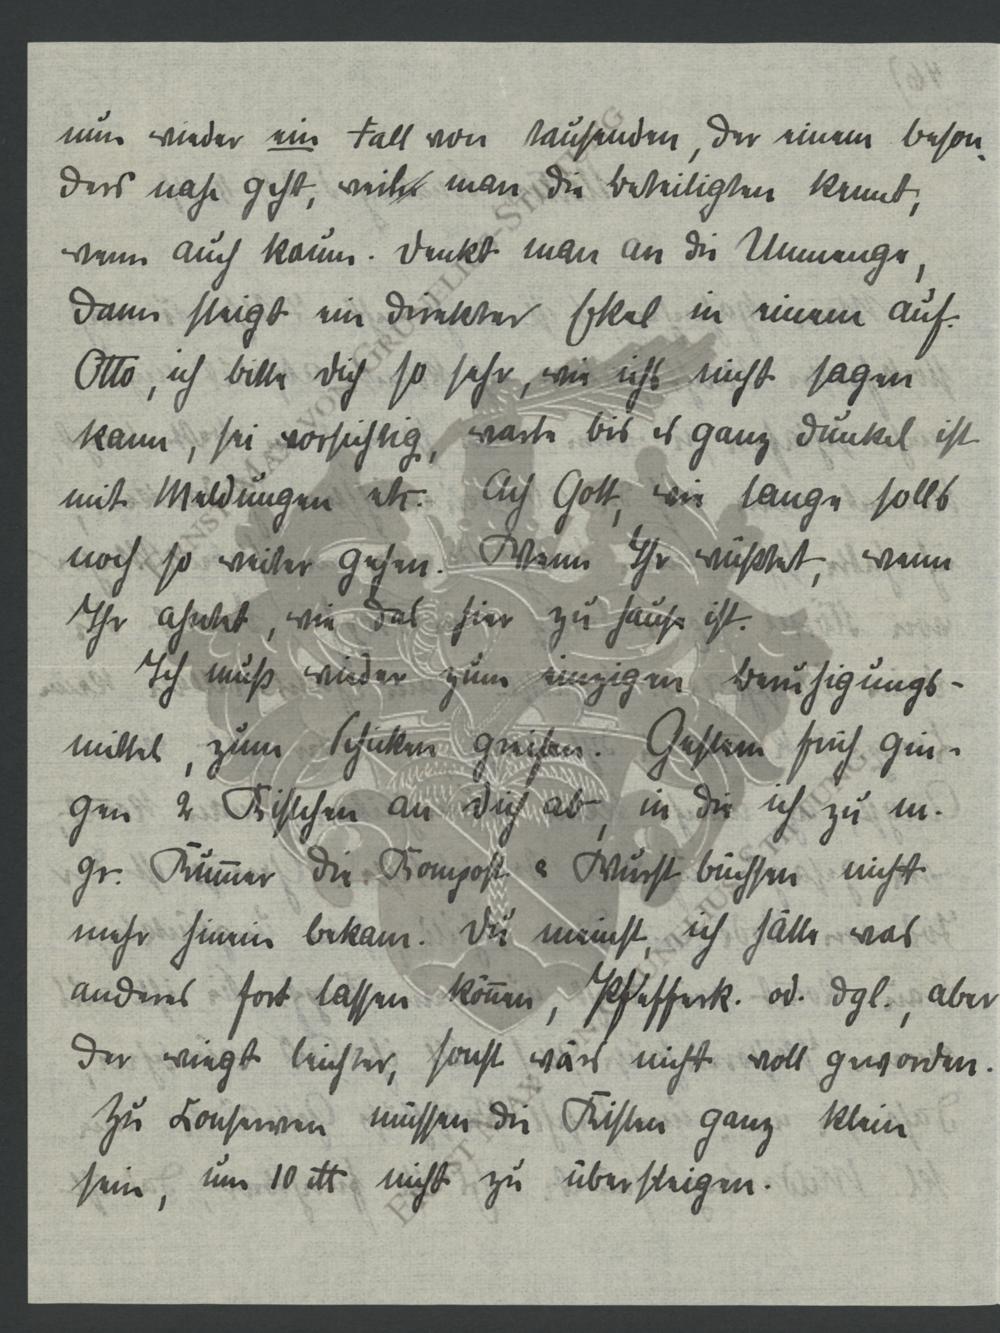 nun wieder ein Fall von tausenden, der einem beson-
ders nahe geht, weil man die Beteiligten kennt,
wenn auch kaum. Denkt man an die Unmenge,
dann steigt ein direkter Ekel in einem auf.
Otto, ich bitte Dich so sehr, wie ichs nicht sagen
kann, sei vorsichtig, warte bis es ganz dunkel ist
mit Meldungen etc. Ach Gott, wie lange solls
noch so weiter gehen. Wenn Ihr wüßtet, wenn
Ihr ahntet, wie das hier zu Hause ist.
Ich muß wieder zum einzigen Beruhigungs-
mittel, zum Schicken greifen. Gestern früh gin-
gen 2 Kistchen an Dich ab, in die ich zu m.
gr. Kum̅er die Kompost & Wurst büchsen nicht
mehr hinein bekam. Du meinst, ich hätte was
anderes fort lassen kön̅en, Pfefferk. od. dgl., aber
der wiegt leichter, sonst wärs nicht voll geworden.
Zu Konserven müssen die Kisten ganz klein
sein, um 10 ℔ nicht zu übersteigen.
ERNST MAYVON GRUNELIUS-STIFTUNG
ERNST MAYVON GRUNELIUS-STIFTUNG